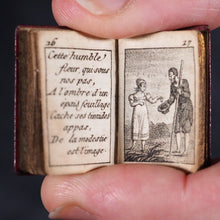 26
Cette humble
fleur, qui sous
nos pas,
A l'ombre d'un
epais feuillage
Cache ses timides
appas,
De la modestie
est l'image.
27